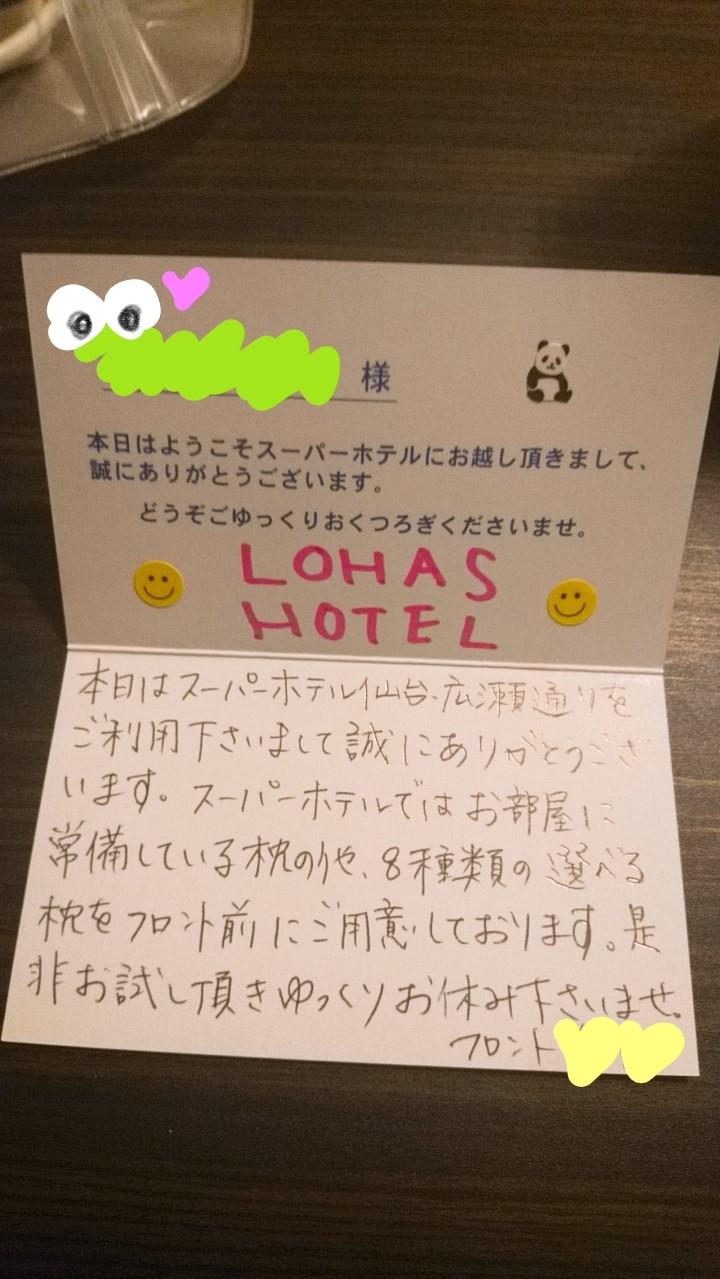 様
本日はようこそスーパーホテルにお越し頂きまして、
誠にありがとうございます。
どうぞごゆっくりおくつろぎくださいませ。
LOHAS
HOTEL
本日はスーパーホテル仙台・広瀬通りを
ご利用下さいまして誠にありがとうござ
います。スーパーホテルではお部屋に
常備している枕の他、8種類の選べる
枕をフロント前にご用意しております。是
非お試し頂きゆっくりお休み下さいませ。
フロント